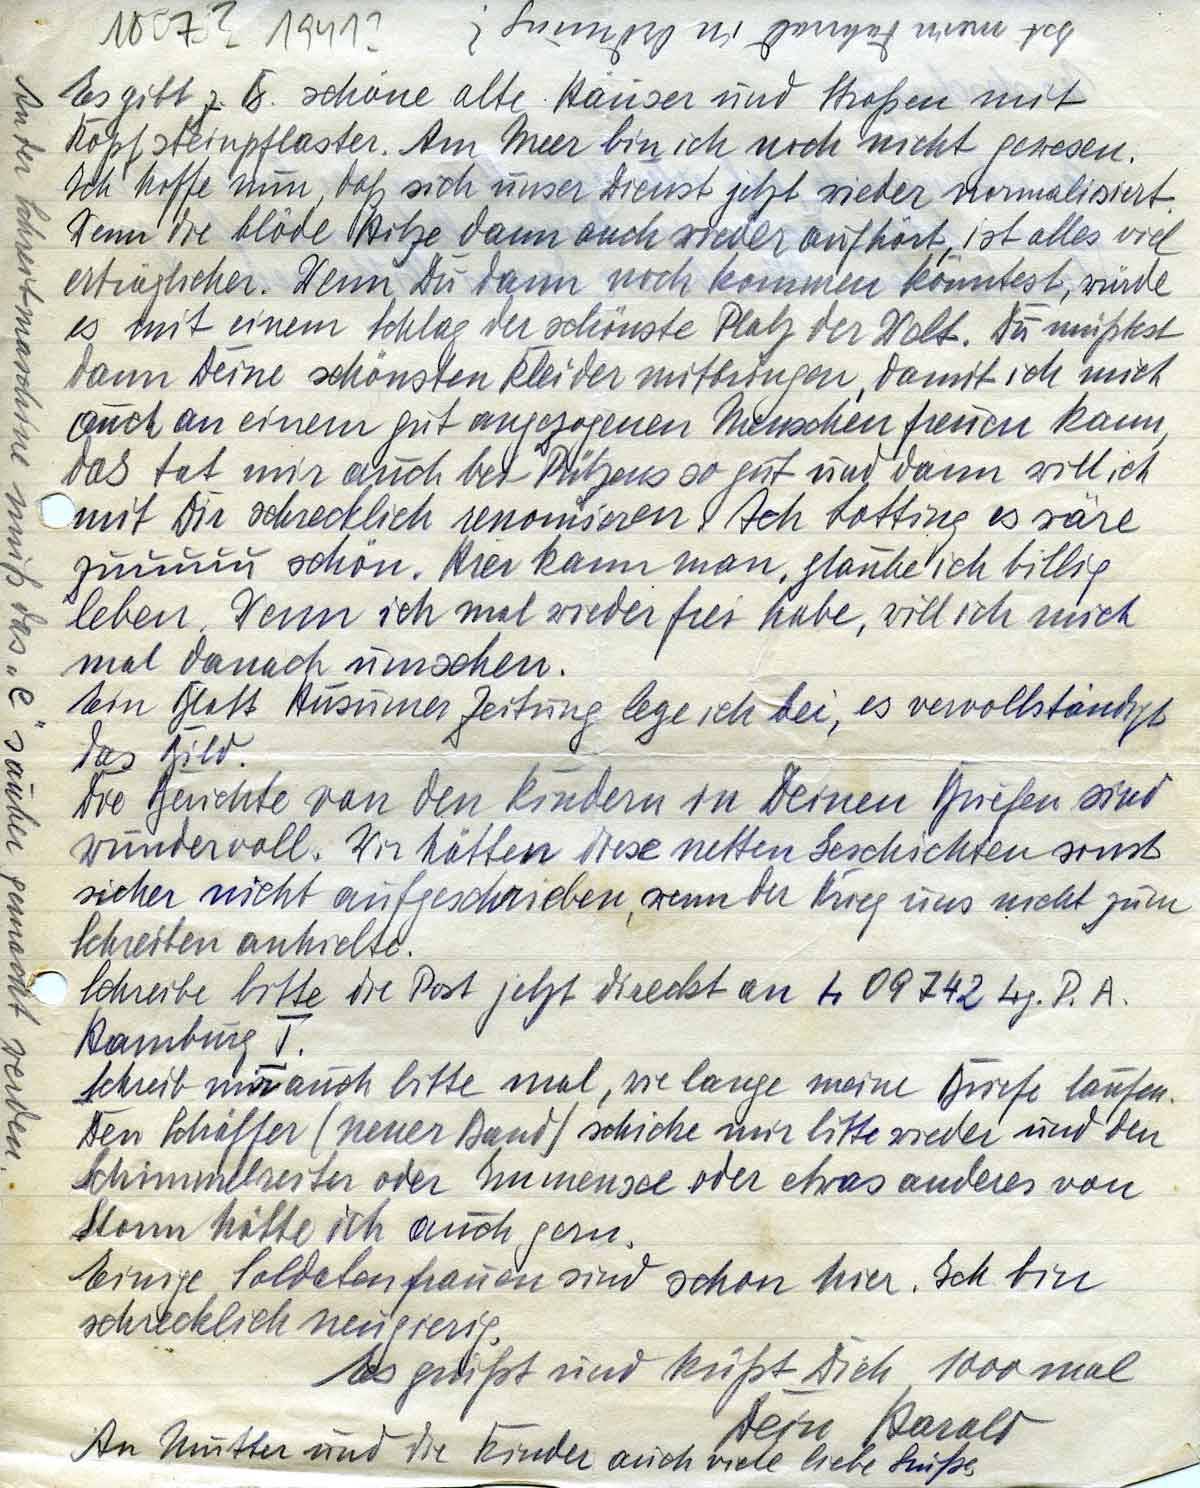 1941?
Ist mein Fahrrad in Ordnung?
Es gibt z. B. schöne alte Häuser und Straßen mit
Kopfsteinpflaster. Am Meer bin ich noch nicht gewesen.
Ich hoffe nun, daß sich unser Dienst jetzt wieder normalisiert.
Wenn die blöde Hitze dann auch wieder aufhört, ist alles viel
erträglicher. Wenn Du dann noch kommen könntest, würde
es mit einem Schlag der schönste Platz der Welt. Du müßtest
dann Deine schönsten Kleider mitbringen, damit ich mich
auch an einem gut angezogenen Menschen freuen kann,
das tat mir auch bei so gut und dann will ich
mit Dir schrecklich renomieren. Ach es wäre
zuuuuuu schön. Hier kann man, glaube ich billig
leben. Wenn ich mal wieder frei habe, will ich mich
mal danach umsehen.
Ein Blatt Husumer Zeitung lege ich bei, es vervollständigt
das Bild.
Die Berichte von den Kindern in Deinen Briefen sind
wundervoll. Wir hätten diese netten Geschichten sonst
sicher nicht aufgeschrieben, wenn der Krieg uns nicht zum
Schreiben anhielte.
Schreibe bitte die Post jetzt direckt an L 09742 Lg. P. A.
Hamburg I.
Schreib mir auch bitte mal, wie lange meine Briefe laufen.
Den Schäffer (neuer Band) schicke mir bitte wieder und den
Schimmelreiter oder Immensee oder etwas anderes von
Storm hätte ich auch gern.
Einige Soldatenfrauen sind schon hier. Ich bin
schrecklich neugierig.
Es grüßt und küßt Dich 1000 mal
Dein Harald
An Mutter und die Kinder auch viele liebe Grüße
An der Schreibmaschine muß das „e“ sauber gemacht werden.